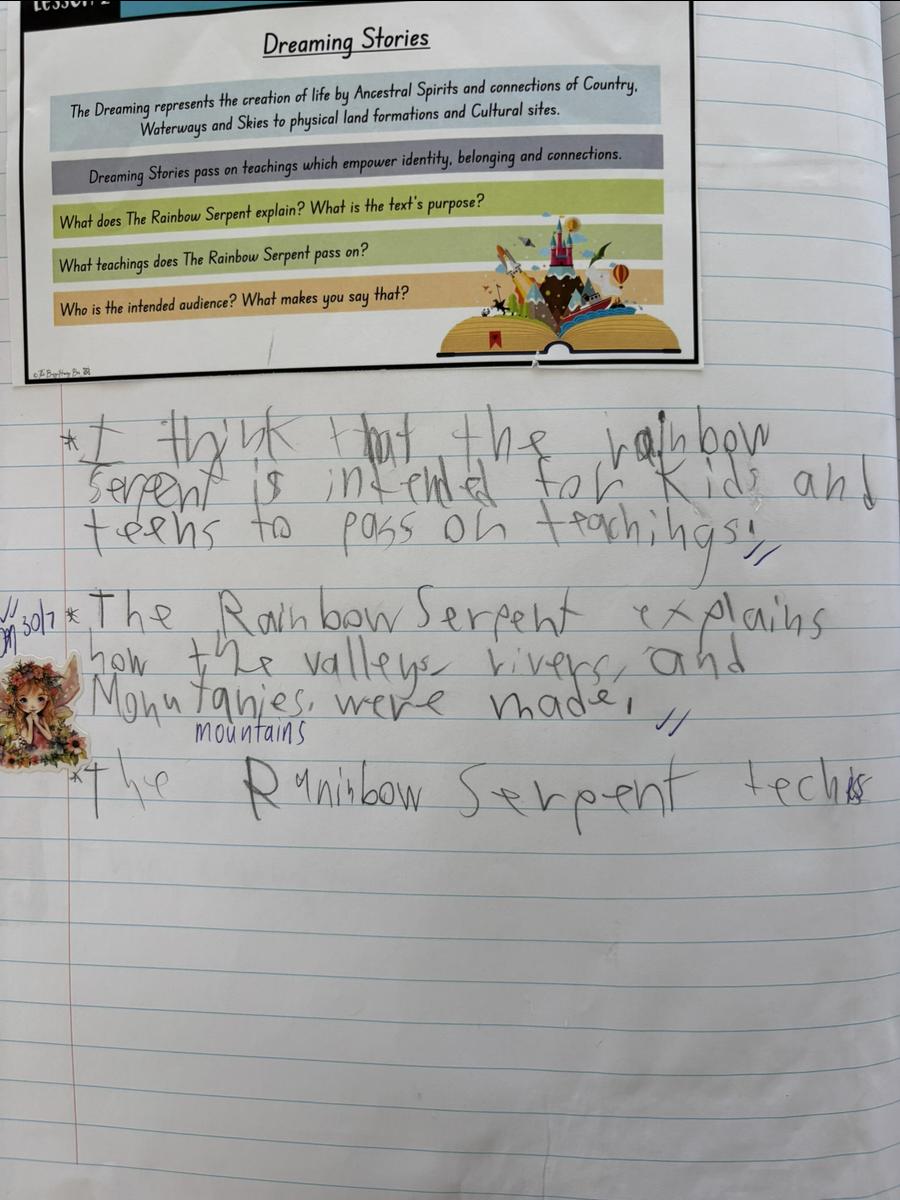 LESSON 2
Dreaming Stories
The Dreaming represents the creation of life by Ancestral Spirits and connections of Country,
Waterways and Skies to physical land formations and Cultural sites.
Dreaming Stories pass on teachings which empower identity, belonging and connections.
What does The Rainbow Serpent explain? What is the text's purpose?
What teachings does The Rainbow Serpent pass on?
Who is the intended audience? What makes you say that?
* I think that the rainbow
serpent is intended for kids and
teens to pass on teachings.
30/7
* The Rainbow Serpent explains
how the valleys, rivers, and
Monutanies. were made.
mountains
* The Raninbow Serpent techs